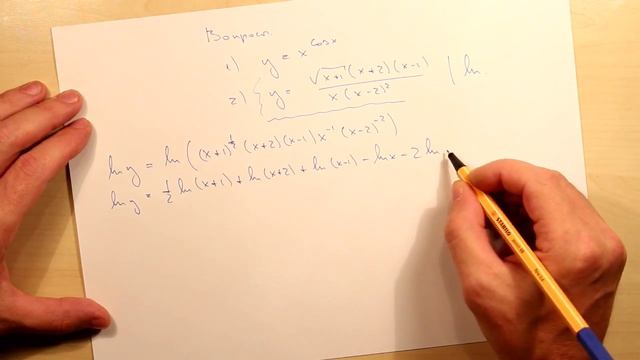 Вопросы.
1) y = x^cosx
2) { y = √(x+1) (x+2)(x-1) / x(x-2)² | ln.
ln y = ln ( (x+1)^½ (x+2)(x-1) x⁻¹ (x-2)⁻² )
ln y = ½ ln(x+1) + ln(x+2) + ln(x-1) - ln x - 2 ln
STABILO